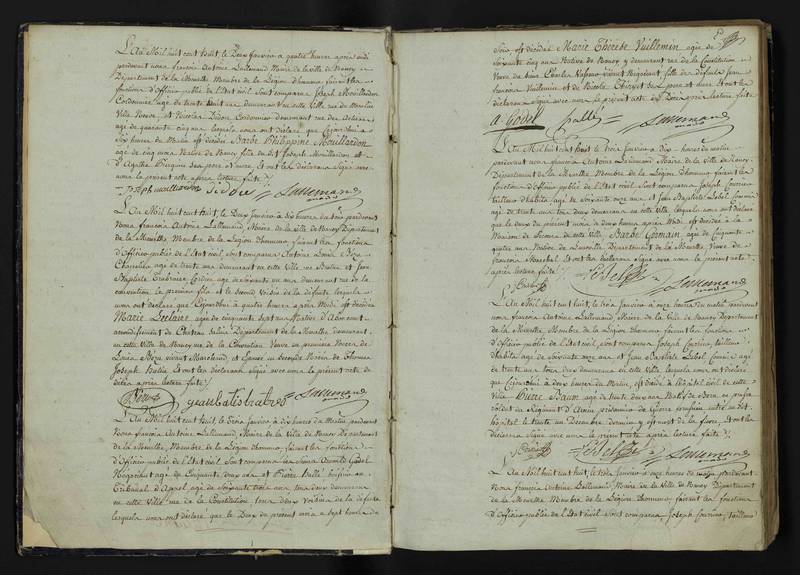 L'An Mil huit cent huit, le Deux Janvier a quatre heures après midi
pardevant nous françois Antoine Lallemand Maire de la ville de Nancy
Département de la Meurthe Membre de la Légion d'honneur faisant les
fonctions d'Officier public de l'Etat civil, Sont comparus Joseph Mouillardon
Cordonnier agé de trente huit ans demeurant en cette Ville rue du Moulin
Ville Neuve, et Nicolas Didon Cordonnier demeurant rue des
agé de quarante cinq ans lesquels nous ont déclaré, que Cejourd'hui a
Six heures du Matin est décédée Barbe Philippine Mouillardon
agée de cinq mois Native de Nancy fille du dit Joseph Mouillardon et
d'Agathe ses pere et mere, Et ont les déclarans Signé avec
nous le present acte après lecture faite.
Joseph mouillardon Didon Lallemand
L'An Mil huit cent huit, le Deux Janvier a dix heures du pardevant
Nous françois Antoine Lallemand, Maire de la ville de Nancy Département
de la Meurthe Membre de la Légion d'honneur, faisant les fonctions
d'Officier public de l'Etat civil, Sont comparus Antoine Louis
agé de trente ans demeurant en cette Ville rue et Jean
Baptiste agé de Soixante un ans demeurant rue de la
convention le premier fils et le Second Voisin de la défunte lesquels
nous ont déclaré que Cejourd'hui a quatre heures après Midi est décédée
Marie Leclaire agée de cinquante Sept ans Native d'
arrondissement de Chateau Salins Département de la Meurthe demeurant
en cette Ville de Nancy rue de la Convention Veuve en premiere Noces de
Louis vivant Marchand et Epouse en Seconde Noces de Thomas
Joseph Et ont les déclarans Signé avec nous le present acte de
décès après lecture faite.
jeanbatiste Lallemand
L'An Mil huit cent huit, le Trois Janvier à dix heures du Matin pardevant
Nous françois Antoine Lallemand, Maire de la Ville de Nancy Département
de la Meurthe, Membre de la Légion d'honneur, faisant les fonctions
d'Officier public de l'Etat civil Sont comparus les Sieurs Godel
Négociant agé de Cinquante deux ans et Pierre
Tribunal d'Appel agé de Soixante trois ans tous deux demeurant
en cette Ville rue de la Constitution tous deux Voisins de la défunte
lesquels nous ont déclaré que le Deux du présent mois a Sept heures du
Soir, est décédée Marie Thérèse Vuillemin agée de
Soixante cinq ans Native de Nancy y demeurant rue de la Constitution
Veuve de vivant Négociant, fille des défunts Jean
françois Vuillemin et de Nicole Thiryet Ses pere et mere Et ont les
déclarans Signé avec nous le present acte de Décès après lecture faite
a. Godel Lallemand
L'An Mil huit cent huit le Trois Janvier a Dix heures du matin
pardevant nous françois Antoine Lallemand Maire de la Ville de Nancy,
Département de la Meurthe Membre de la Légion d'honneur faisant les
fonctions d'Officier public de l'Etat civil Sont comparus Joseph
tailleur d'habits agé de Soixante onze ans, et Jean Baptiste Lebel
agé de trente un ans tous deux demeurant en cette Ville, lesquels nous ont déclaré
que le deux du présent mois a deux heures après Midi est décédée à la
Maison de Secours de cette Ville, Barbe Germain agée de Cinquante
quatre ans Native de Département de la Meurthe, Veuve de
françois Marchal Et ont les déclarans Signé avec nous le present acte
après lecture faite.
Lebel Lallemand
L'An Mil huit cent huit, le Trois Janvier a onze heures du matin pardevant
nous françois Antoine Lallemand, Maire de la Ville de Nancy Département
de la Meurthe Membre de la Légion d'honneur, faisant les fonctions
d'Officier public de l'Etat civil, sont comparus Joseph tailleur
d'habits agé de Soixante onze ans et Jean Baptiste Lebel agé
de trente un ans tous deux demeurant en cette Ville, lesquels nous ont déclaré
que Cejourd'hui a deux heures du Matin, est décédé à l'hôpital civil de cette
Ville Pierre Baum agé de trente deux ans Natif de
Soldat au Régiment prisonnier de Guerre entré au dit
hôpital le trente un Décembre dernier y est mort de la fievre, Et ont les
déclarans Signé avec nous le present acte après lecture faite.
Lebel Lallemand
L'An Mil huit cent huit, le trois Janvier a onze heures du pardevant
Nous françois Antoine Lallemand, Maire de la Ville de Nancy Département
de la Meurthe Membre de la Légion d'honneur faisant les fonctions
d'Officier public de l'Etat civil Sont comparus Joseph tailleur